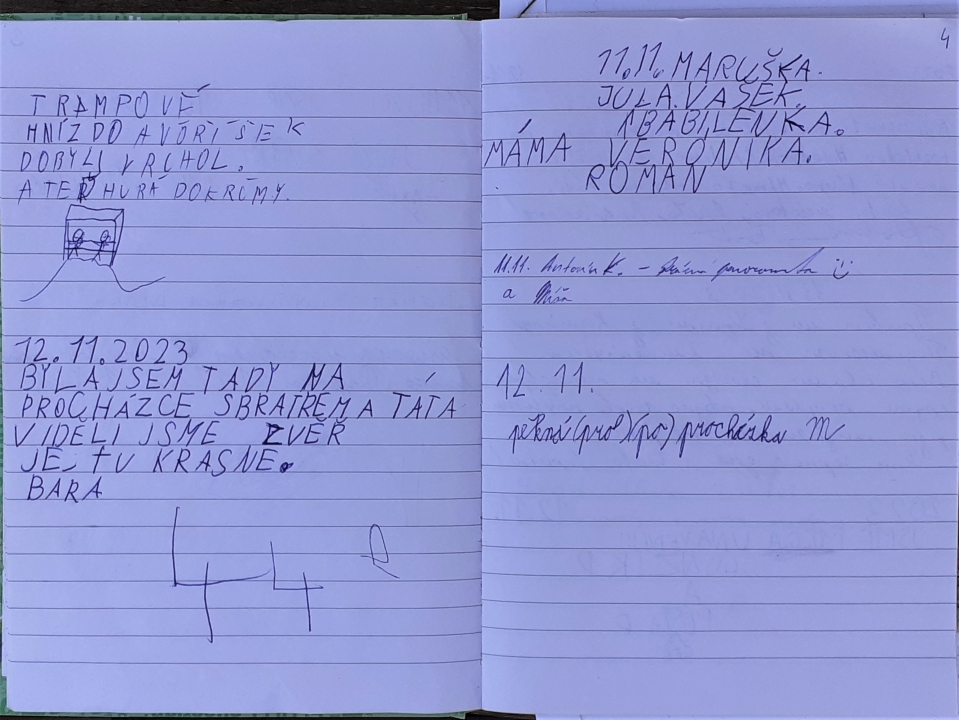 TRAMPOVÉ
HNÍZDO A VOŘÍŠEK
DOBYLI VRCHOL.
A TEĎ HURÁ DO KRŮMY.
12.11.2023
BYLA JSEM TADY NA
PROCHÁZCE SBRATREM A TÁTA
VIDĚLI JSME ZVĚŘ
JE TU KRASNE.
BARA
44
4
11.11. MARUŠKA.
JULA. VAŠEK.
1BABI, LENKA.
MÁMA VERONIKA.
ROMAN
11.11. Antonín K. - :)
a Míša
12.11.
pěkná (pro)(po) procházka M